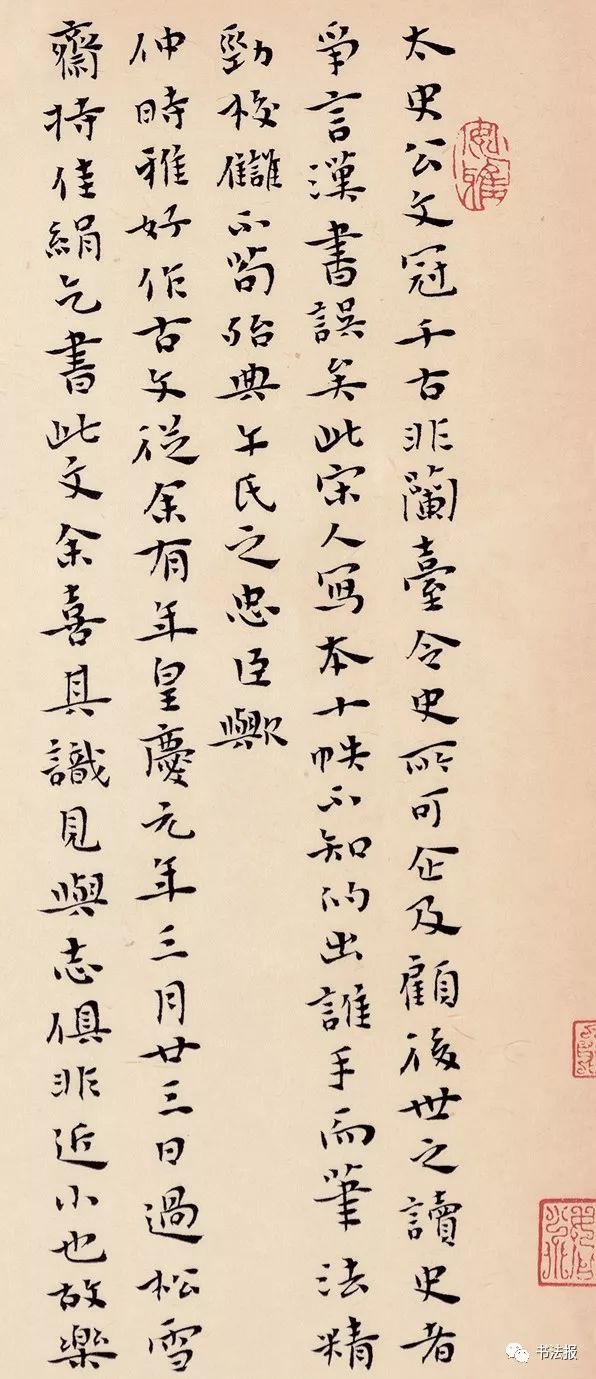 太史公文冠千古非蘭臺令史所可企及顧後世之讀史者
爭言漢書誤矣此宋人寫本十帙不知的出誰手而筆法精
勁校讎不苟殆典午氏之忠臣歟
仲時雅好作古文從余有年皇慶元年三月廿三日過松雪
齋持佳絹乞書此文余喜其識見與志俱非近小也故樂
书法报